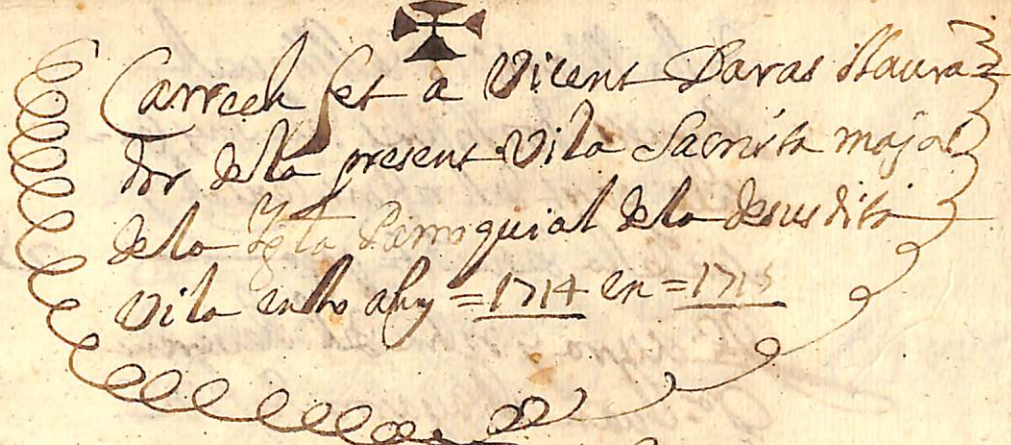 Carrech fet a Vicent Daras llaura=
dor de la present Vila Sacrista major
de la Igla Parroquial de la desus dita
Vila en lo añy =1714 en =1715